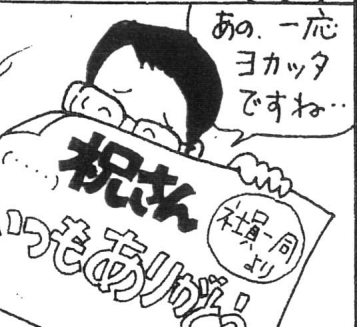 あの、一応
ヨカッタ
ですね‥
祝さん
いつもありがとう
社員一同
より